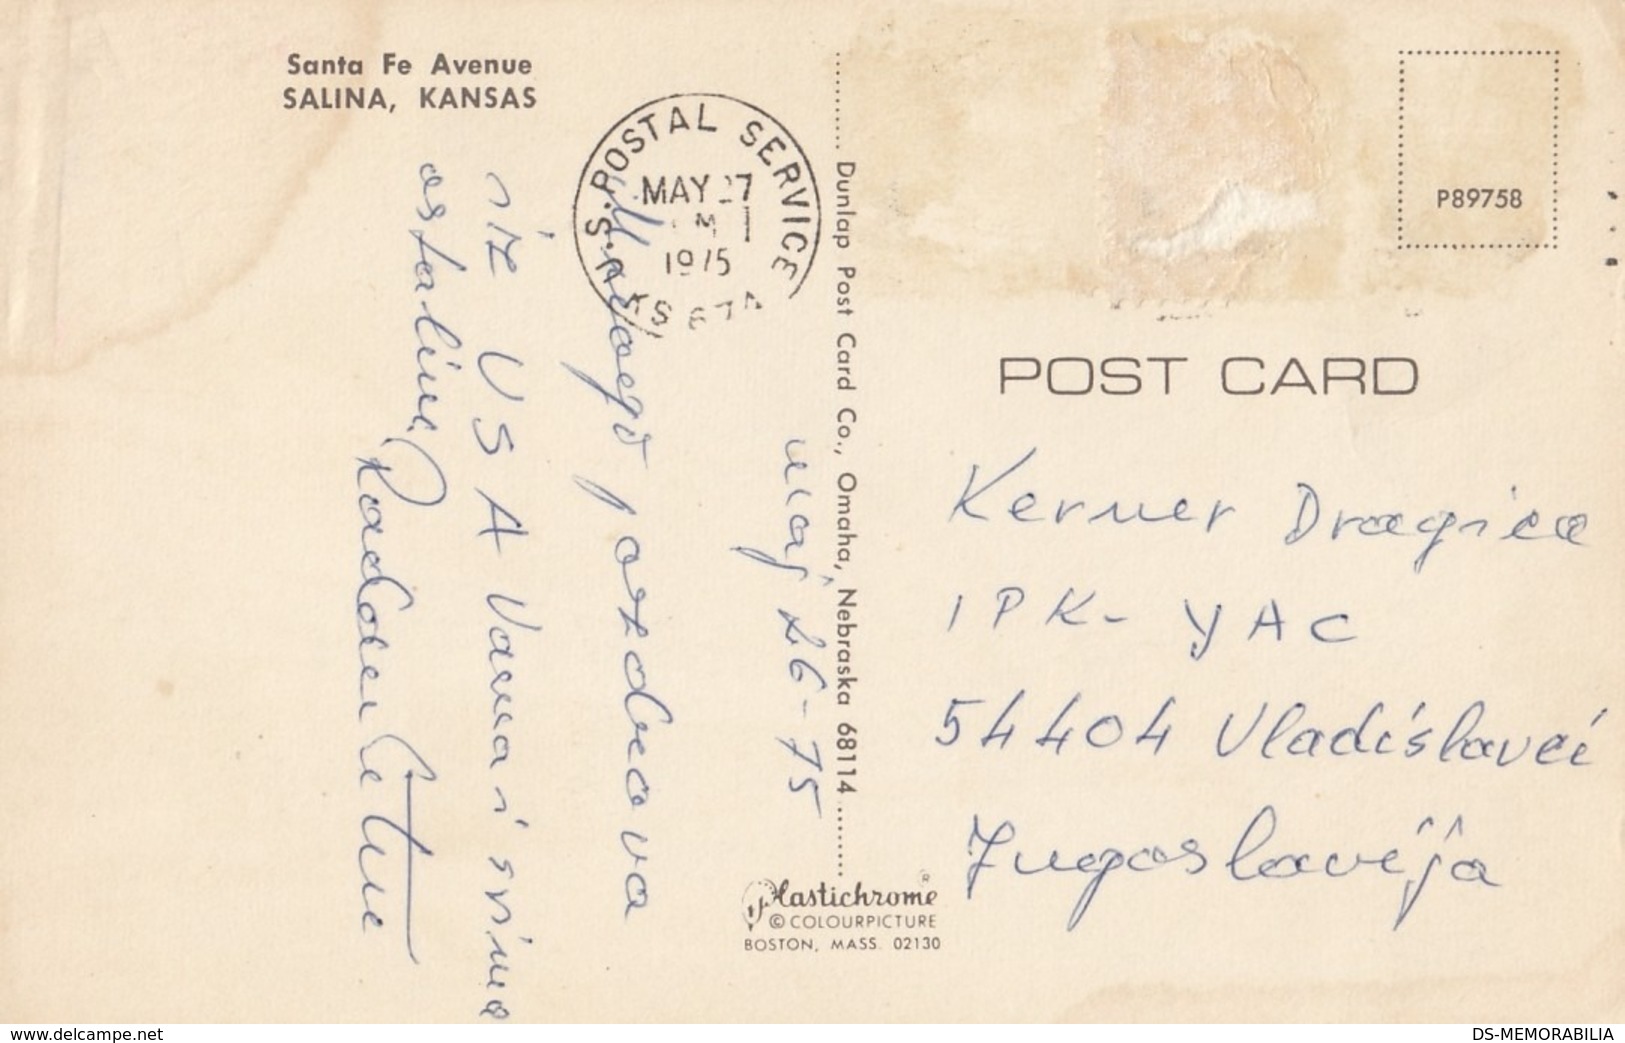 Santa Fe Avenue
SALINA, KANSAS
U.S. POSTAL SERVICE
MAY 27
1975
KS 674
Dunlap Post Card Co., Omaha, Nebraska 68114
P89758
POST CARD
maj 26-75
Mnogo pozdrava
iz USA Vama i svima
ostalima
Kerner Dragica
IPK-
54404 Vladislavci
Jugoslavija
Plastichrome®
© COLOURPICTURE
BOSTON, MASS. 02130
www.delcampe.net
DS-MEMORABILIA